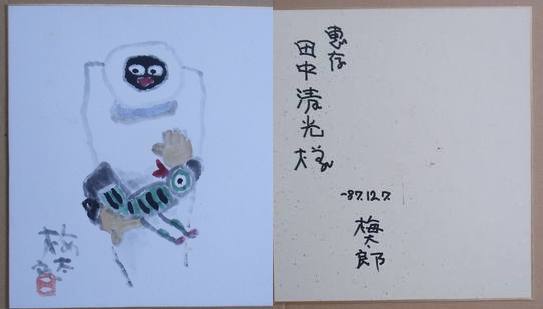 梅太郎
惠存
田中清光様
-87.12.7.
梅太郎